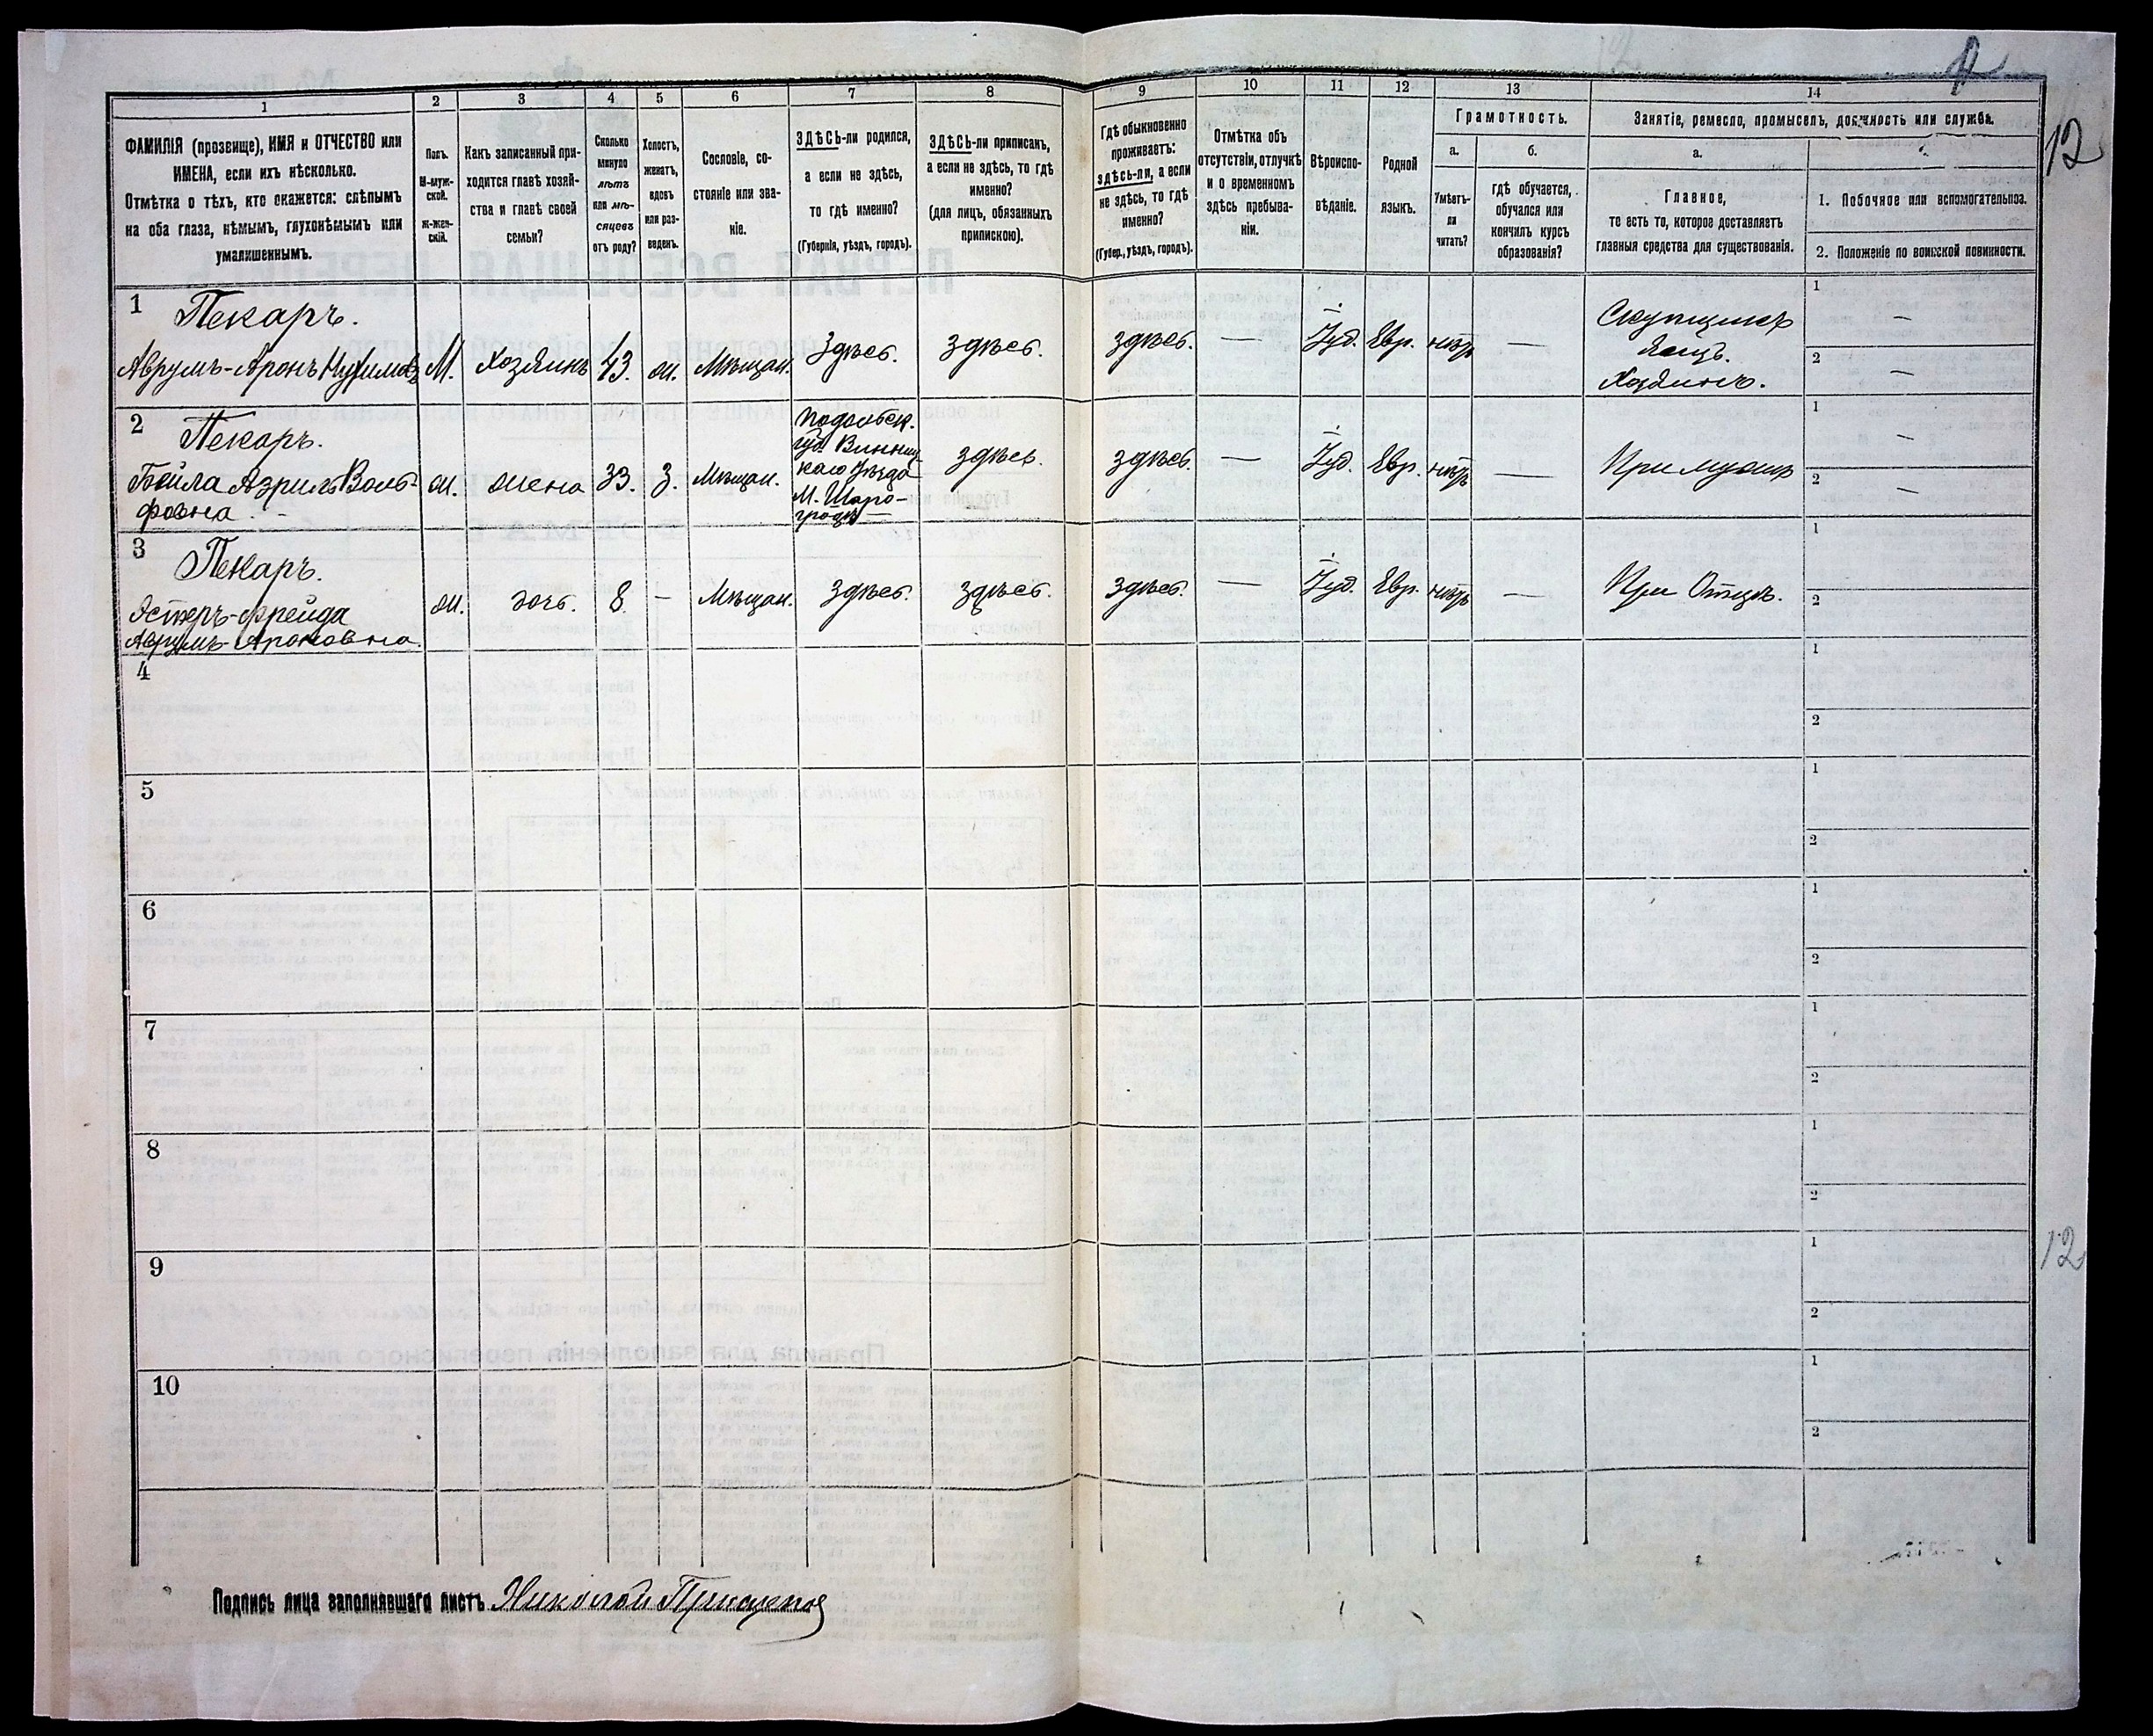 1
2
3
4
5
6
7
8
9
10
11
12
13
14
ФАМИЛІЯ (прозвище), ИМЯ и ОТЧЕСТВО или
ИМЕНА, если ихъ нѣсколько.
Отмѣтка о тѣхъ, кто окажется: слѣпымъ
на оба глаза, нѣмымъ, глухонѣмымъ или
умалишеннымъ.
Полъ.
М-муж-
ской.
Ж-жен-
скій.
Какъ записанный при-
ходится главѣ хозяй-
ства и главѣ своей
семьи?
Сколько
минуло
лѣтъ
или мѣ-
сяцевъ
отъ роду?
Холостъ,
женатъ,
вдовъ
или раз-
веденъ.
Сословіе, со-
стояніе или зва-
ніе.
ЗДѢСЬ-ли родился,
а если не здѣсь,
то гдѣ именно?
(Губернія, уѣздъ, городъ).
ЗДѢСЬ-ли приписанъ,
а если не здѣсь, то гдѣ
именно?
(для лицъ, обязанныхъ
припискою).
Гдѣ обыкновенно
проживаетъ:
здѣсь-ли, а если
не здѣсь, то гдѣ
именно?
(Губер., уѣздъ, городъ).
Отмѣтка объ
отсутствіи, отлучкѣ
и о временномъ
здѣсь пребыва-
ніи.
Вѣроиспо-
вѣданіе.
Родной
языкъ.
Грамотность.
а.
Умѣетъ-
ли
читать?
б.
гдѣ обучается,
обучался или
кончилъ курсъ
образованія?
Занятіе, ремесло, промыселъ, должность или служба.
а.
Главное,
то есть то, которое доставляетъ
главныя средства для существованія.
1. Побочное или вспомогательноэ.
2. Положеніе по воинской повинности.
12
1
Пекаръ.
Аврумъ-Аронъ Нухимовъ
М.
Хозяинъ
43.
ж.
Мѣщан.
Здѣсь.
здѣсь.
здѣсь.
—
Іуд.
Евр.
нѣтъ
—
Скупщикъ
Яицъ.
Хозяинъ.
1
—
2
—
2
Пекаръ.
Бейла Азриль Воль-
фовна
ж.
жена
33.
З.
Мѣщан.
Подольск.
губ. Винниц-
каго Уѣзда
М. Шаро-
гродъ
здѣсь.
здѣсь.
—
Іуд.
Евр.
нѣтъ
—
При мужѣ
1
—
2
—
3
Пекаръ.
Эстеръ-Фрейда
Аврумъ-Ароновна.
ж.
дочь.
8
—
Мѣщан.
здѣсь.
здѣсь.
здѣсь.
—
Іуд.
Евр.
нѣтъ
—
При Отцѣ.
1
2
4
1
2
5
1
2
6
1
2
7
1
2
8
1
2
9
1
2
12
10
1
2
Подпись лица заполнявшаго листъ Николай